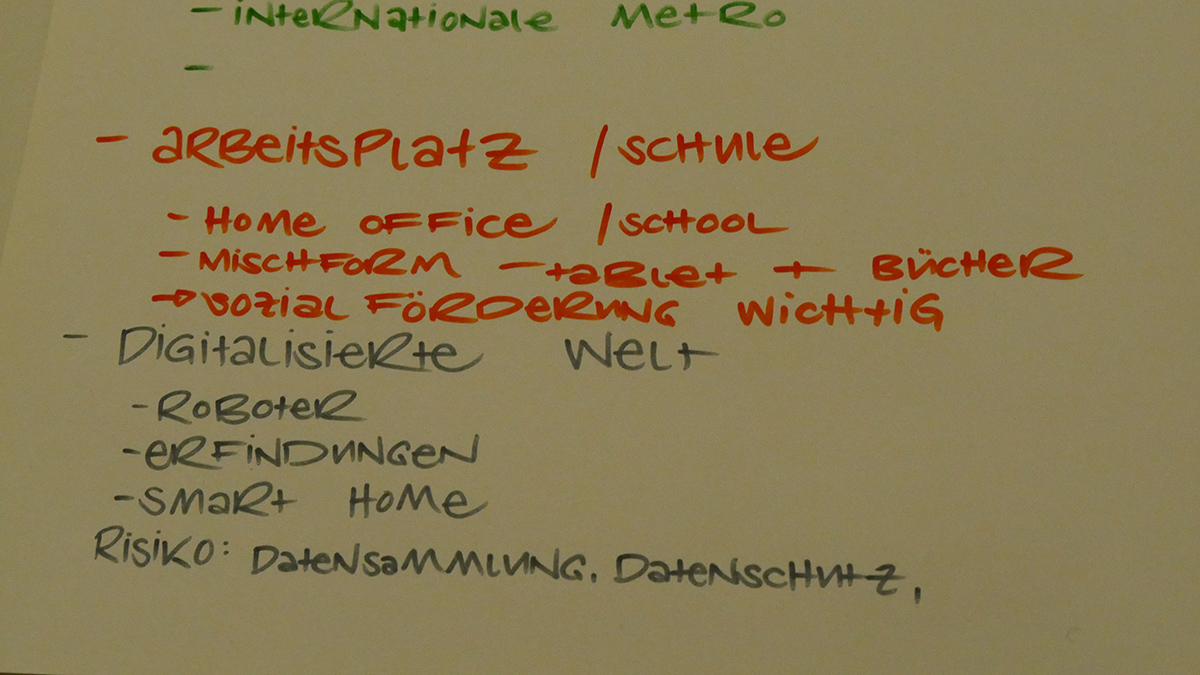 - iNteRNatioNale MetRO
-
- aRBeitsPlatZ / SCHule
- HOMe OFFice / SCHOOL
- MiSCHFORM - taBlet + BÜCHeR
→ SOZiaL FÖRDeRUNG WiCHtiG
- DiGitaLisieRte Welt
- ROBOteR
- eRFiNDUNGeN
- SMaRt HOMe
RisiKO: DateNSaMMLUNG. DateNSCHutZ,